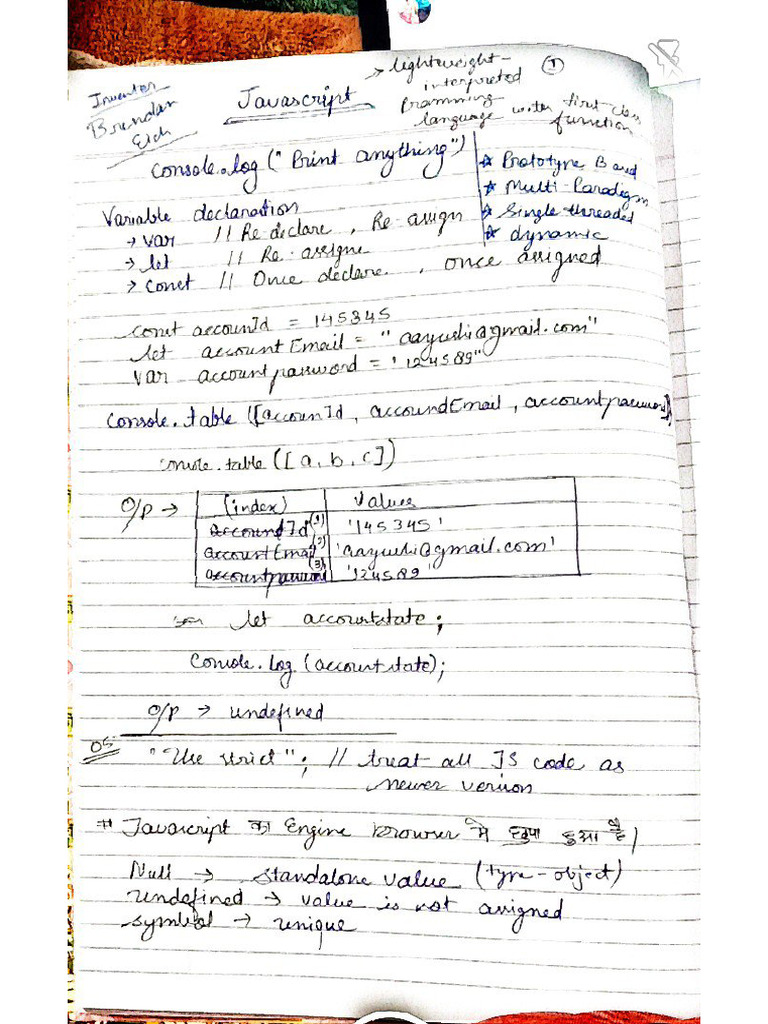 Inventor
Brendan
Eich
Javascript
→ lightweight-
interpreted
Pramming
language with first class
function
①
Console.log("Print anything")
☆ Prototype Based
☆ Multi-Paradigm
☆ Single threaded
☆ dynamic
Variable declaration
→ var // Re declare, Re assign
→ let // Re-assigne
→ const // Once declare, once assigned
const accounId = 145345
let accountEmail = "aayushi@gmail.com"
var accountpassword = '124589"
Console.table ([accounId, accoundEmail, accountpassword])
console.table ([a, b, c])
O/p →
(index) Values
accoundId (1) '145345'
accountEmail (2) 'aayushi@gmail.com'
accountpassword (3) '124589'
let accountstate;
Console.log (accountstate);
O/p → undefined
05
"Use strict"; // treat all JS code as
newer version
# Javascript का Engine browser मे छुपा हुआ है।
Null → standalone value (type-object)
undefined → value is not assigned
symbol → unique